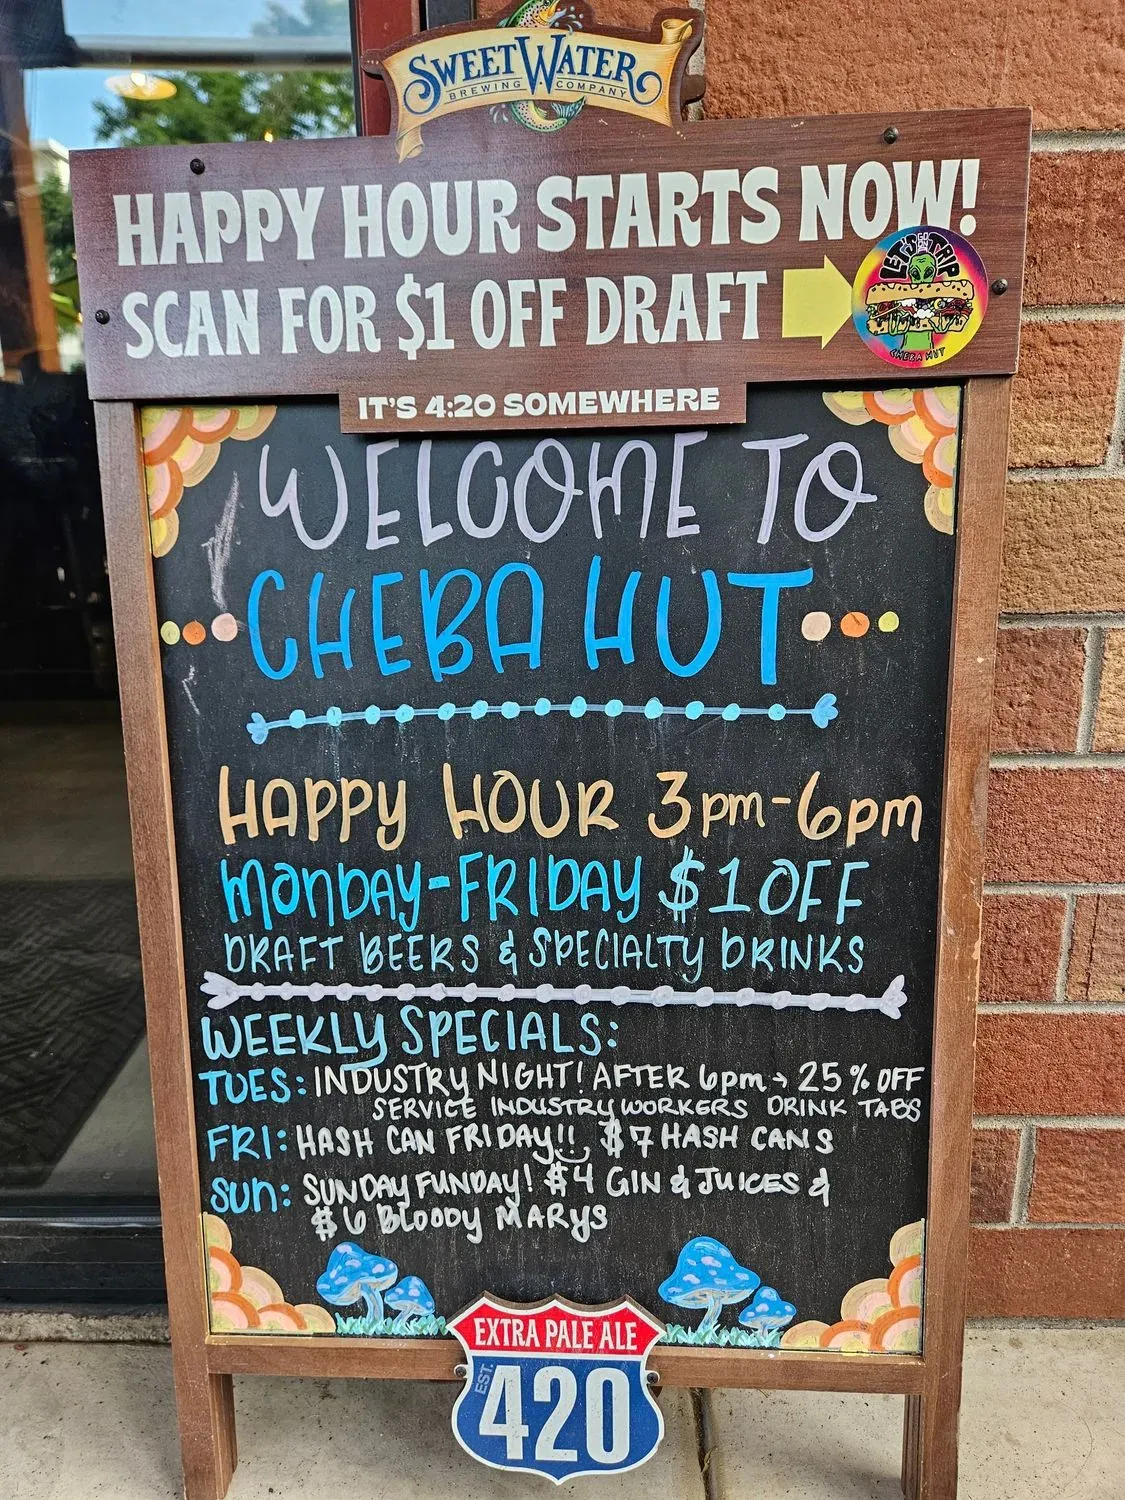 SWEETWATER
BREWING COMPANY
HAPPY HOUR STARTS NOW!
SCAN FOR $1 OFF DRAFT
LET'S GET TRIP
CHEBA HUT
IT'S 4:20 SOMEWHERE
WELCOME TO
CHEBA HUT
HAPPY HOUR 3pm-6pm
MONDAY-FRIDAY $1 OFF
DRAFT BEERS & SPECIALTY DRINKS
WEEKLY SPECIALS:
TUES: INDUSTRY NIGHT! AFTER 6pm → 25% OFF
SERVICE INDUSTRY WORKERS DRINK TABS
FRI: HASH CAN FRIDAY!! $7 HASH CANS
SUN: SUNDAY FUNDAY! $4 GIN & JUICES &
$6 BLOODY MARYS
EXTRA PALE ALE
EST.
420